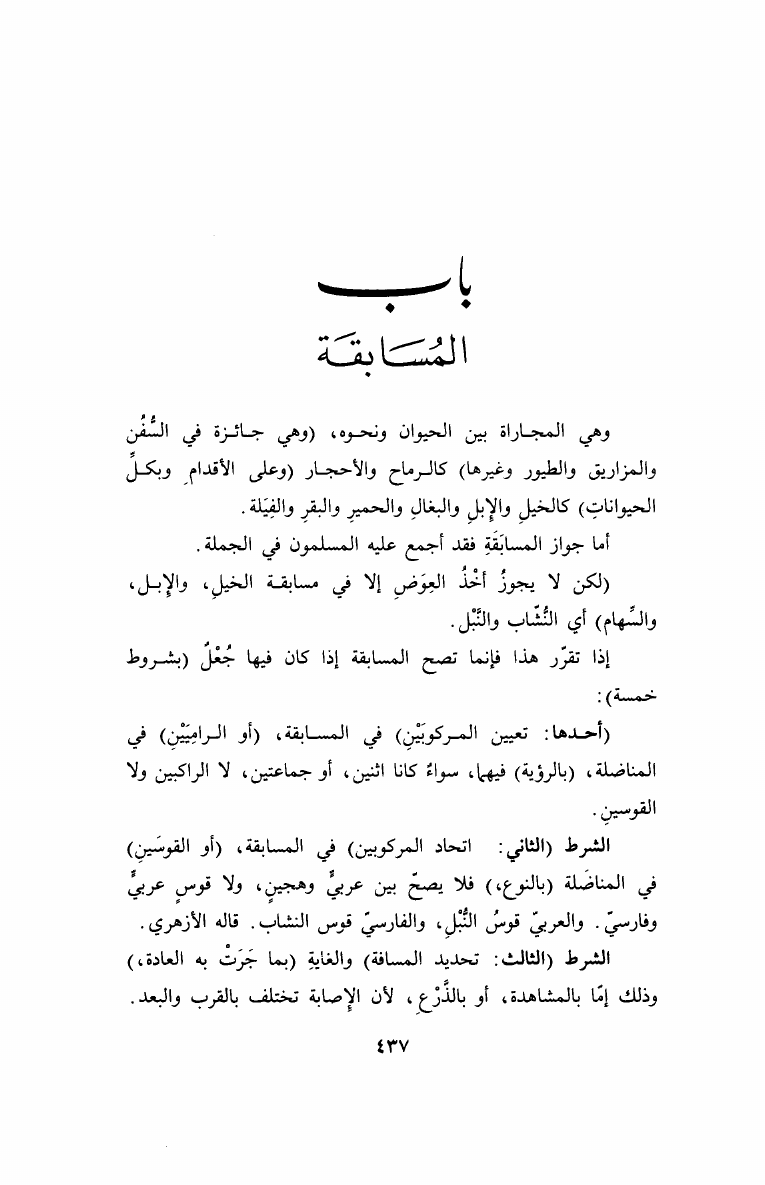 باب
المُسَابقَة
وهي المجاراة بين الحيوان ونحوه، (وهي جائزة في السُّفُن
والمزاريق والطيور وغيرها) كالرماح والأحجار (وعلى الأقدام ِ وبكلِّ
الحيواناتِ) كالخيلِ والإِبلِ والبغالِ والحميرِ والبقرِ والفِيَلة.
أما جواز المسابَقَةِ فقد أجمع عليه المسلمون في الجملة.
(لكن لا يجوزُ أخْذُ العِوَضِ إلا في مسابقة الخيلِ، والإِبل،
والسِّهام) أي النُّشّاب والنَّبْل.
إذا تقرّر هذا فإنما تصح المسابقة إذا كان فيها جُعْلٌ (بشروط
خمسة):
(أحدها: تعيين المركوبَيْنِ) في المسابقة، (أو الرامِيَيْنِ) في
المناضلة، (بالرؤية) فيهما، سواءٌ كانا اثنين، أو جماعتين، لا الراكبين ولا
القوسينِ.
الشرط (الثاني: اتحاد المركوبين) في المسابقة، (أو القوسَينِ)
في المناضَلة (بالنوع،) فلا يصحّ بين عربيٍّ وهجينٍ، ولا قوسٍ عربيٍّ
وفارسيّ. والعربيّ قوسُ النُّبْلِ، والفارسيّ قوس النشاب. قاله الأزهري.
الشرط (الثالث: تحديد المسافة) والغايةِ (بما جَرَتْ به العادة،)
وذلك إمّا بالمشاهدة، أو بالذَّرْعِ، لأن الإِصابة تختلف بالقرب والبعد.
٤٣٧